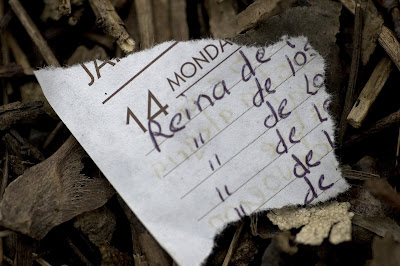 JA
14 MONDAY
Reina de
" de los
" de Lo
" de L
" de
" de